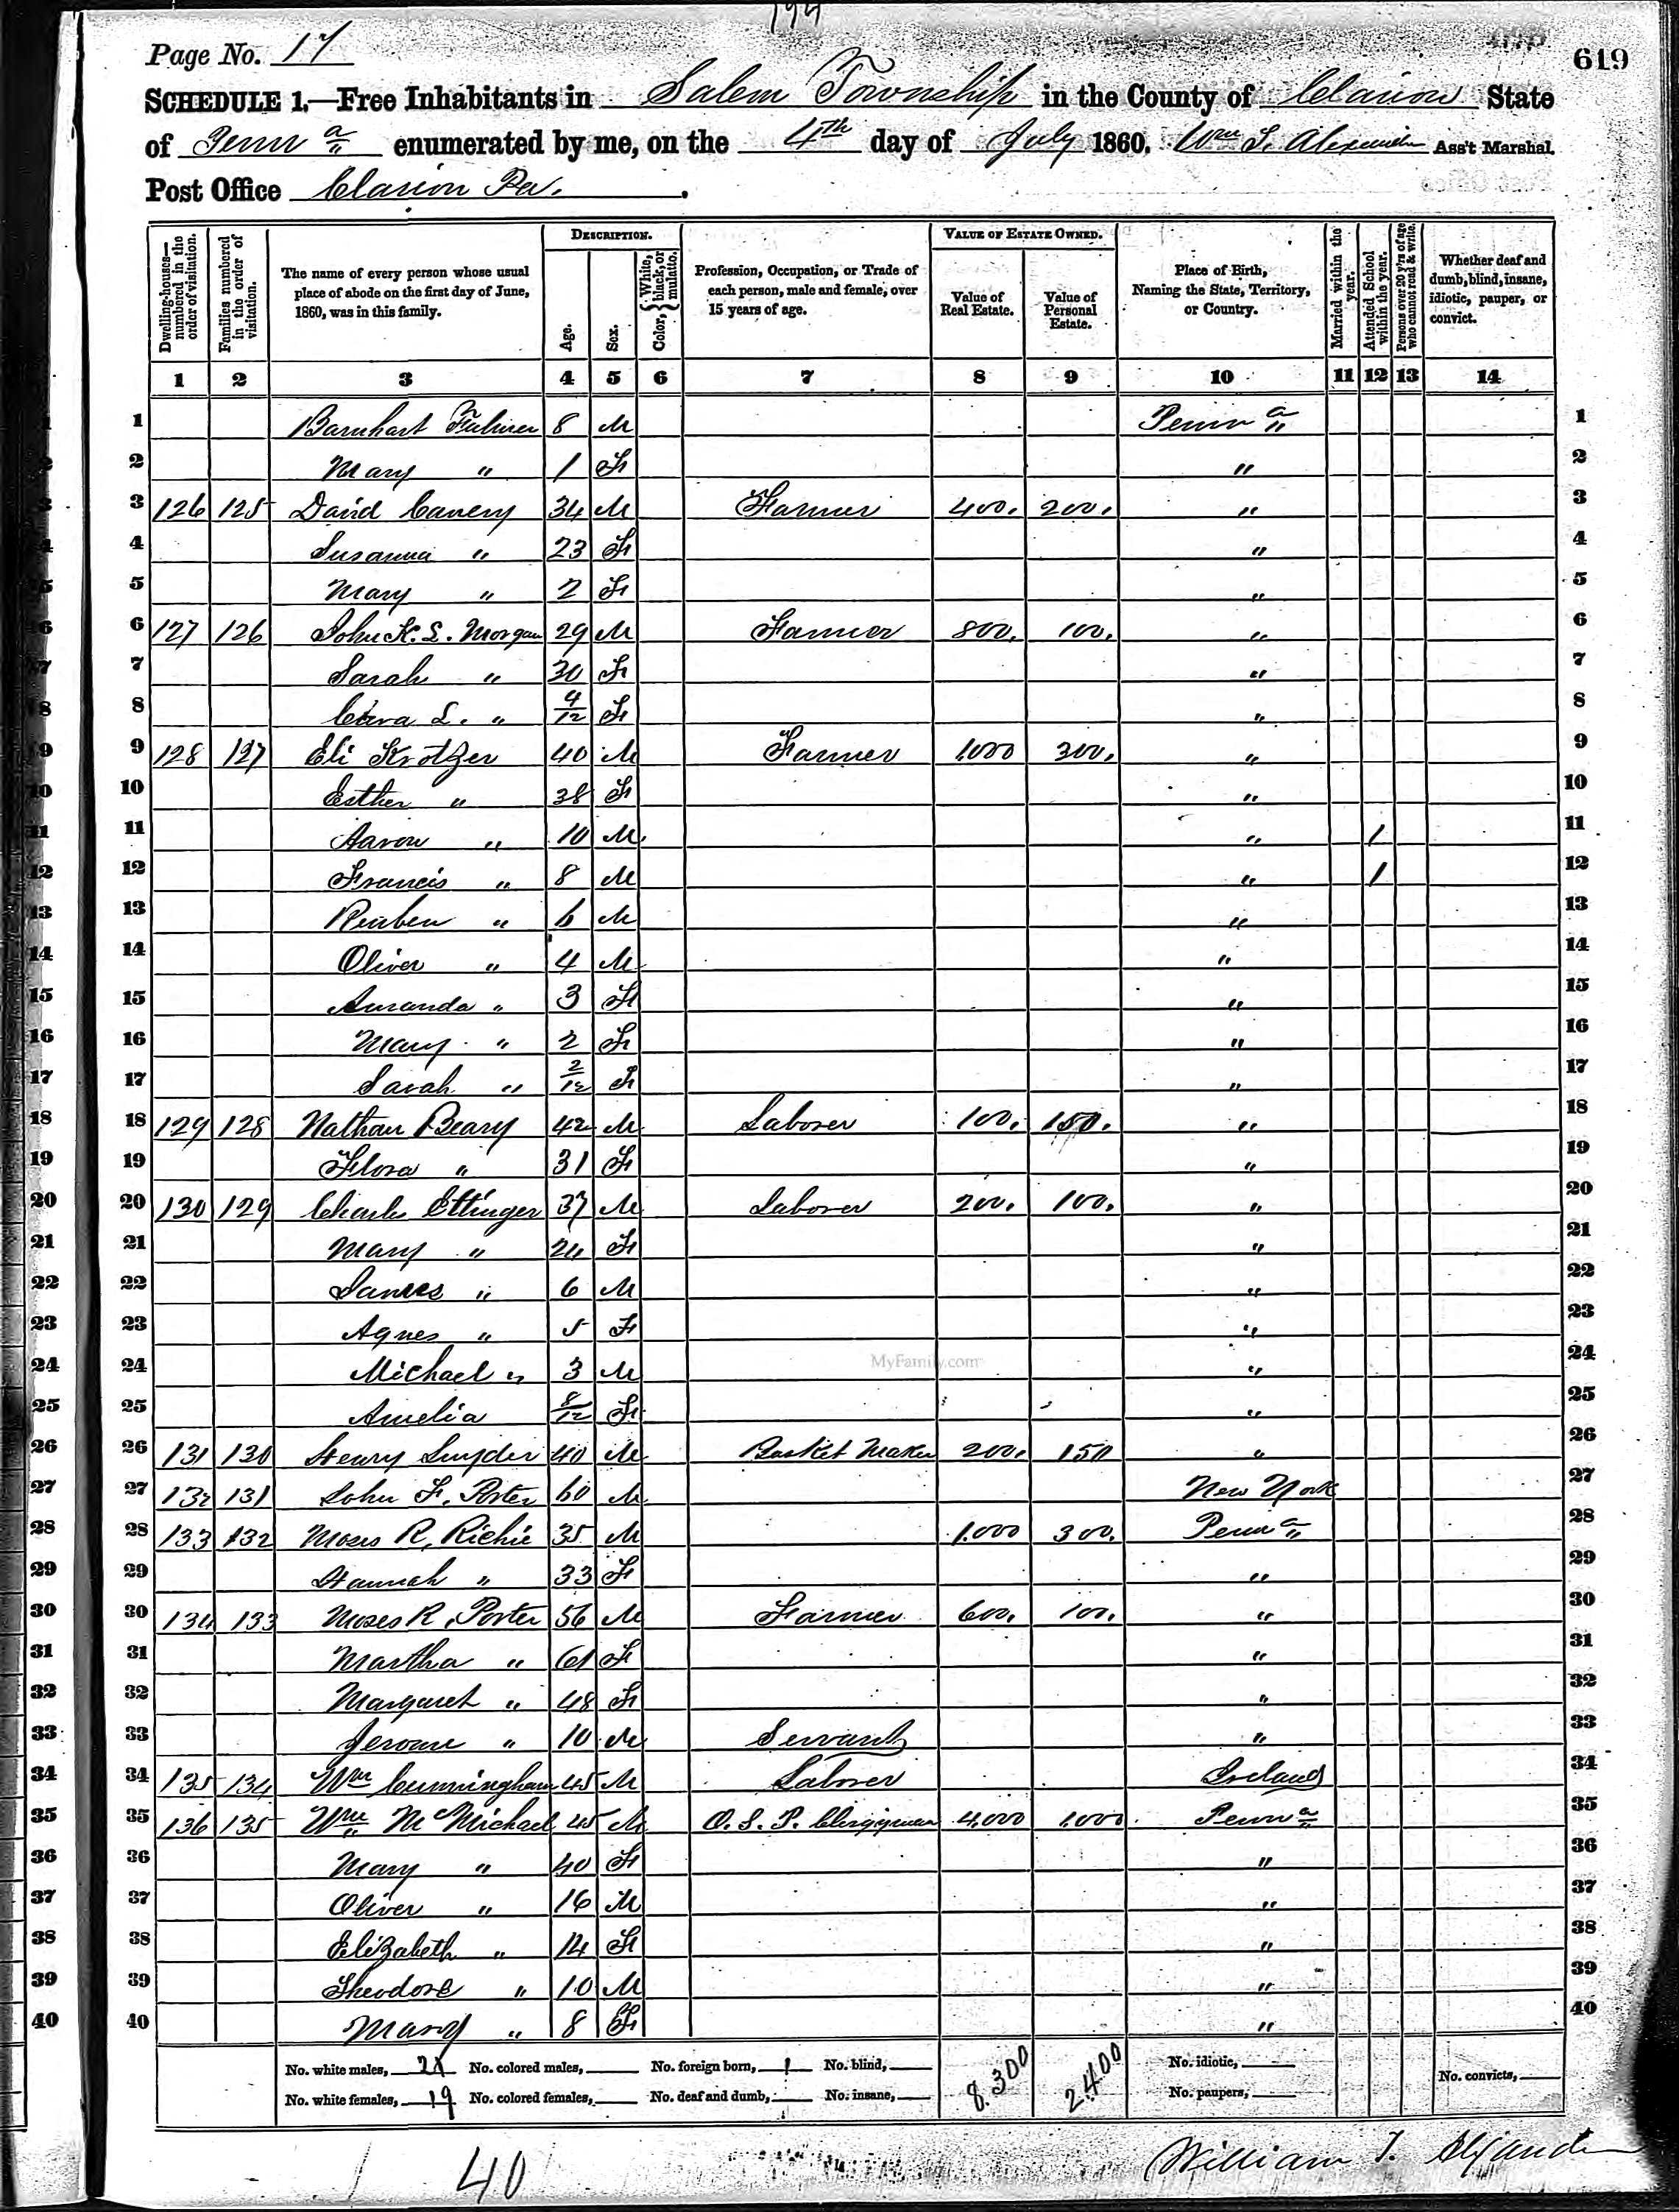 194
Page No. 17
619
SCHEDULE 1.—Free Inhabitants in Salem Township in the County of Clarion State
of Penn a enumerated by me, on the 4th day of July 1860. Wm T. Alexander Ass't Marshal.
Post Office Clarion Pa.
Dwelling-houses—numbered in the order of visitation. Families numbered in the order of visitation. The name of every person whose usual place of abode on the first day of June, 1860, was in this family. DESCRIPTION. Age. Sex. Color, White, black, or mulatto. Profession, Occupation, or Trade of each person, male and female, over 15 years of age. VALUE OF ESTATE OWNED. Value of Real Estate. Value of Personal Estate. Place of Birth, Naming the State, Territory, or Country. Married within the year. Attended School within the year. Persons over 20 y'rs of age who cannot read & write. Whether deaf and dumb, blind, insane, idiotic, pauper, or convict.
1 2 3 4 5 6 7 8 9 10 11 12 13 14
1 Barnhart 8 M Penn a 1
2 Mary " 1 F " 2
3 126 125 David 34 M Farmer 400. 200. " 3
4 Susanna " 23 F " 4
5 Mary " 2 F " 5
6 127 126 John K. L. Morgan 29 M Farmer 800. 100. " 6
7 Sarah " 30 F " 7
8 L. " 4/12 F " 8
9 128 127 Eli Krotzer 40 M Farmer 1,000 300. " 9
10 Esther " 38 F " 10
11 Aaron " 10 M " 1 11
12 Francis " 8 M " 1 12
13 Reuben " 6 M " 13
14 Oliver " 4 M " 14
15 Amanda " 3 F " 15
16 Mary " 2 F " 16
17 Sarah " 2/12 F " 17
18 129 128 Nathan Beary 42 M Laborer 100. 150. " 18
19 Flora " 31 F " 19
20 130 129 Charles Ettinger 37 M Laborer 200. 100. " 20
21 Mary " 24 F " 21
22 James " 6 M " 22
23 Agnes " 5 F " 23
24 Michael " 3 M " 24
25 Amelia 8/12 F " 25
26 131 130 Henry Snyder 40 M Basket Maker 200. 150 " 26
27 132 131 John F. Porter 60 M New York 27
28 133 132 Moses R. Richie 35 M 1.000 300. Penn a 28
29 Hannah " 33 F " 29
30 134 133 Moses R. Porter 56 M Farmer 600. 100. " 30
31 Martha " 61 F " 31
32 Margaret " 48 F " 32
33 Jerome " 10 M Servant " 33
34 135 134 Wm Cunningham 45 M Laborer Ireland 34
35 136 135 Wm McMichael 45 M O. S. P. Clergyman 4,000 1,000 Penn a 35
36 Mary " 40 F " 36
37 Oliver " 16 M " 37
38 Elizabeth " 14 F " 38
39 Theodore " 10 M " 39
40 Mary " 8 F " 40
MyFamily.com
No. white males, 21 No. colored males, No. foreign born, 1 No. blind, 8.300 2.400 No. idiotic, No. convicts,
No. white females, 19 No. colored females, No. deaf and dumb, No. insane, No. paupers,
40
William T. Alexander